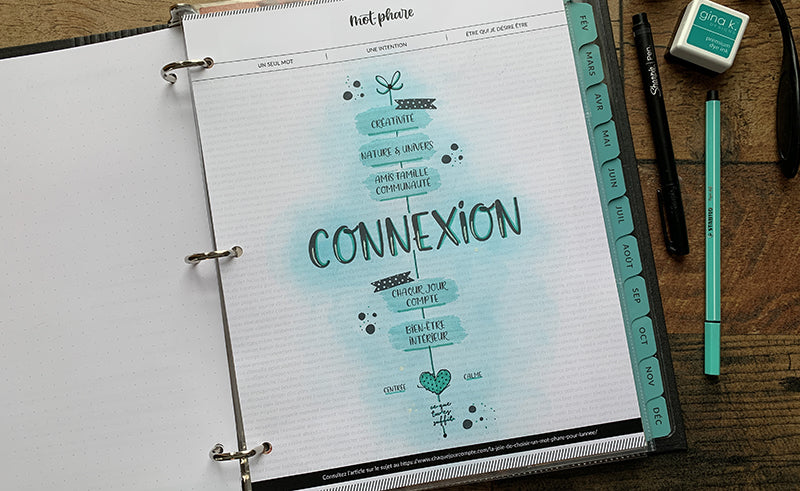 mot-phare
UN SEUL MOT
UNE INTENTION
ÊTRE QUI JE DÉSIRE ÊTRE
CRÉATIVITÉ
NATURE & UNIVERS
AMIS FAMILLE
COMMUNAUTÉ
CONNEXION
CHAQUE JOUR
COMPTE
BIEN-ÊTRE
INTÉRIEUR
CENTRÉE
CALME
ce que
tu es
suffit
Consultez l'article sur le sujet au https://www.chaquejourcompte.com/la-joie-de-choisir-un-mot-phare-pour-lannee/
FÉV
MARS
AVR
MAI
JUIN
JUIL
AOÛT
SEP
OCT
NOV
DÉC
Sharpie pen
gina k.
DESIGNS
premium
dye ink
STABILO